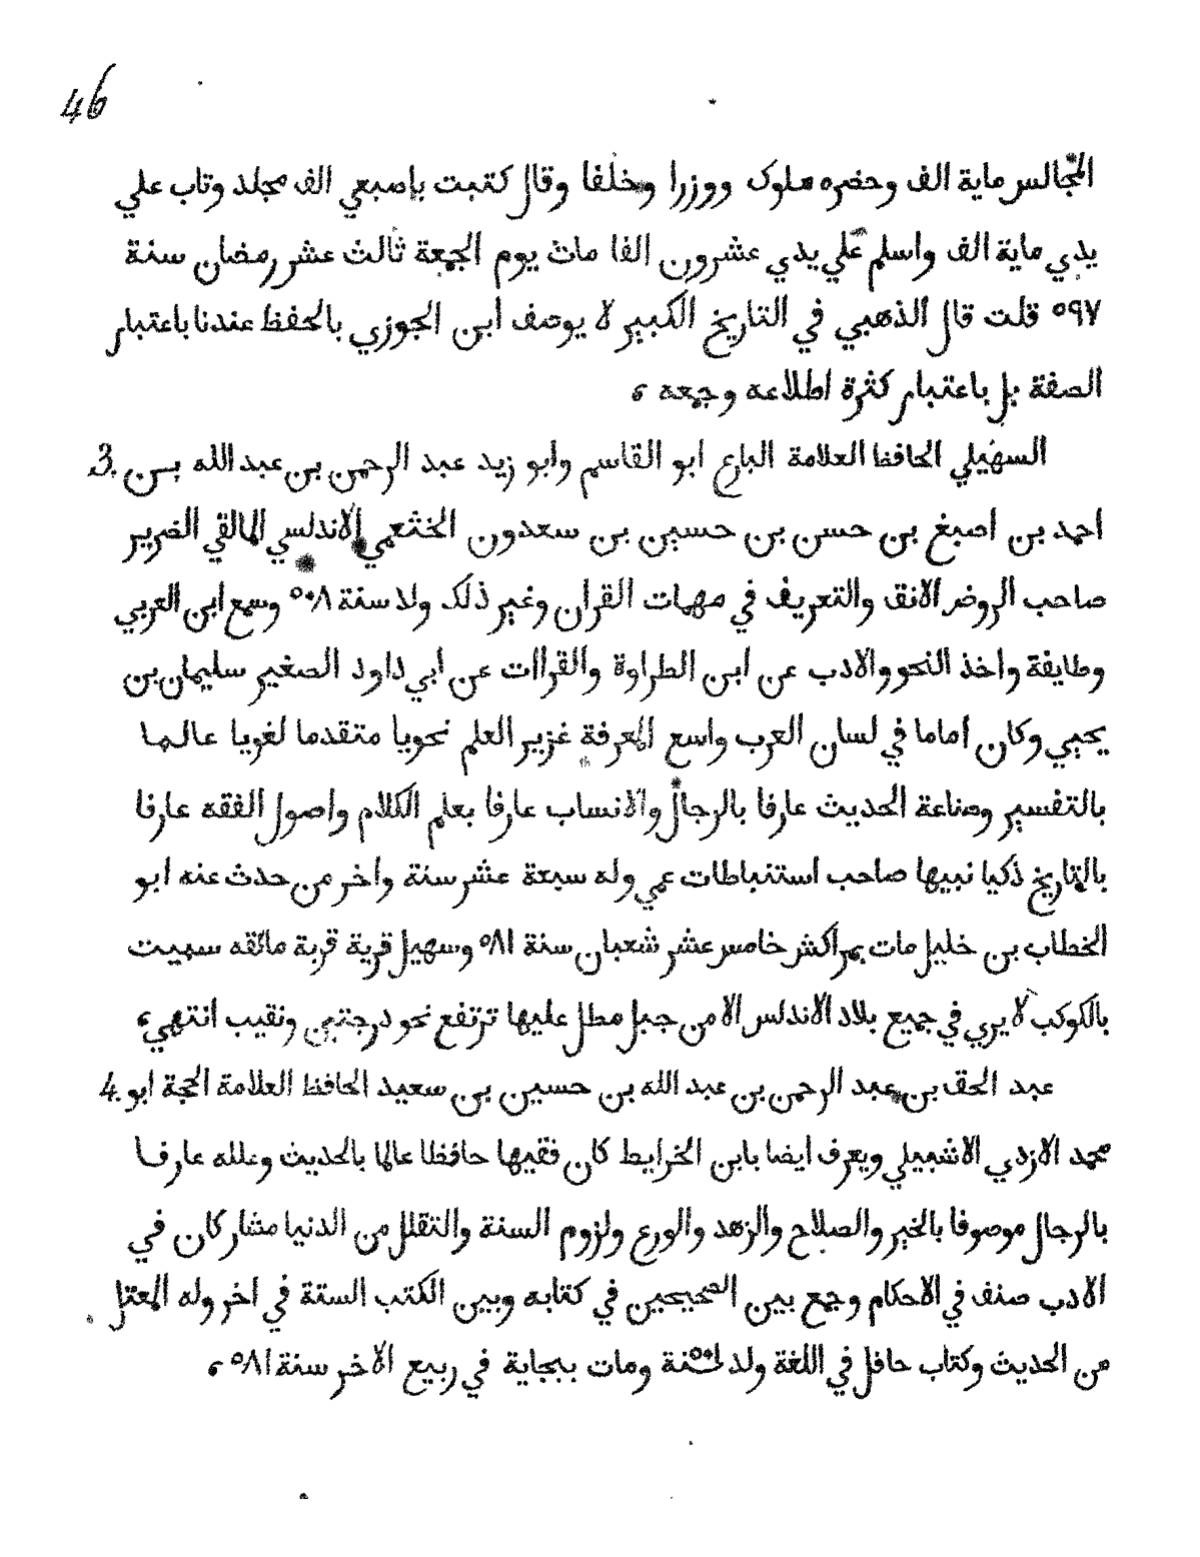 46
المجالس ماية الف وحضره ملوك ووزرا وخلفا وقال كتبت بإصبعي الف مجلد وتاب علي
يدي ماية الف واسلم علي يدي عشرون الفا مات يوم الجمعة ثالث عشر رمضان سنة
٥٩٧ قلت قال الذهبي في التاريخ الكبير لا يوصف ابن الجوزي بالحفظ عندنا باعتبار
الصفة بل باعتبار كثرة اطلاعه وجمعه ،
3. السهيلي الحافظ العلامة البارع ابو القاسم وابو زيد عبد الرحمن بن عبد الله بن
احمد بن اصبغ بن حسن بن حسين بن سعدون الخثعمي الاندلسي المالقي الضرير
صاحب الروض الانف والتعريف في مهمات القران وغير ذلك ولا سنة ٥٠٨ وسمع ابن العربي
وطايفة واخذ النحو والادب عن ابن الطراوة والقراات عن ابي داود الصغير سليمان بن
يحيي وكان اماما في لسان العرب واسع المعرفة غزير العلم نحويا متقدما لغويا عالما
بالتفسير وصناعة الحديث عارفا بالرجال والانساب عارفا بعلم الكلام واصول الفقه عارفا
بالتاريخ ذكيا نبيها صاحب استنباطات عمي وله سبعة عشر سنة واخر من حدث عنه ابو
الخطاب بن خليل مات بمراكش خامس عشر شعبان سنة ٥٨١ وسهيل قرية قربة مالقه سميت
بالكوكب لا يري في جميع بلاد الاندلس الا من جبل مطل عليها ترتفع نحو درجتين ونقيب انتهي ،
4. عبد الحق بن عبد الرحمن بن عبد الله بن حسين بن سعيد الحافظ العلامة الحجة ابو
محمد الازدي الاشبيلي ويعرف ايضا بابن الخرايط كان فقيها حافظا عالما بالحديث وعلله عارفا
بالرجال موصوفا بالخير والصلاح والزهد والورع ولزوم السنة والتقلل من الدنيا مشار كان في
الادب صنف في الاحكام وجمع بين الصحيحين في كتابه وبين الكتب الستة في اخر وله المعتل
من الحديث وكتاب حافل في اللغة ولد سنة ومات ببجاية في ربيع الاخر سنة ٥٨١ ،